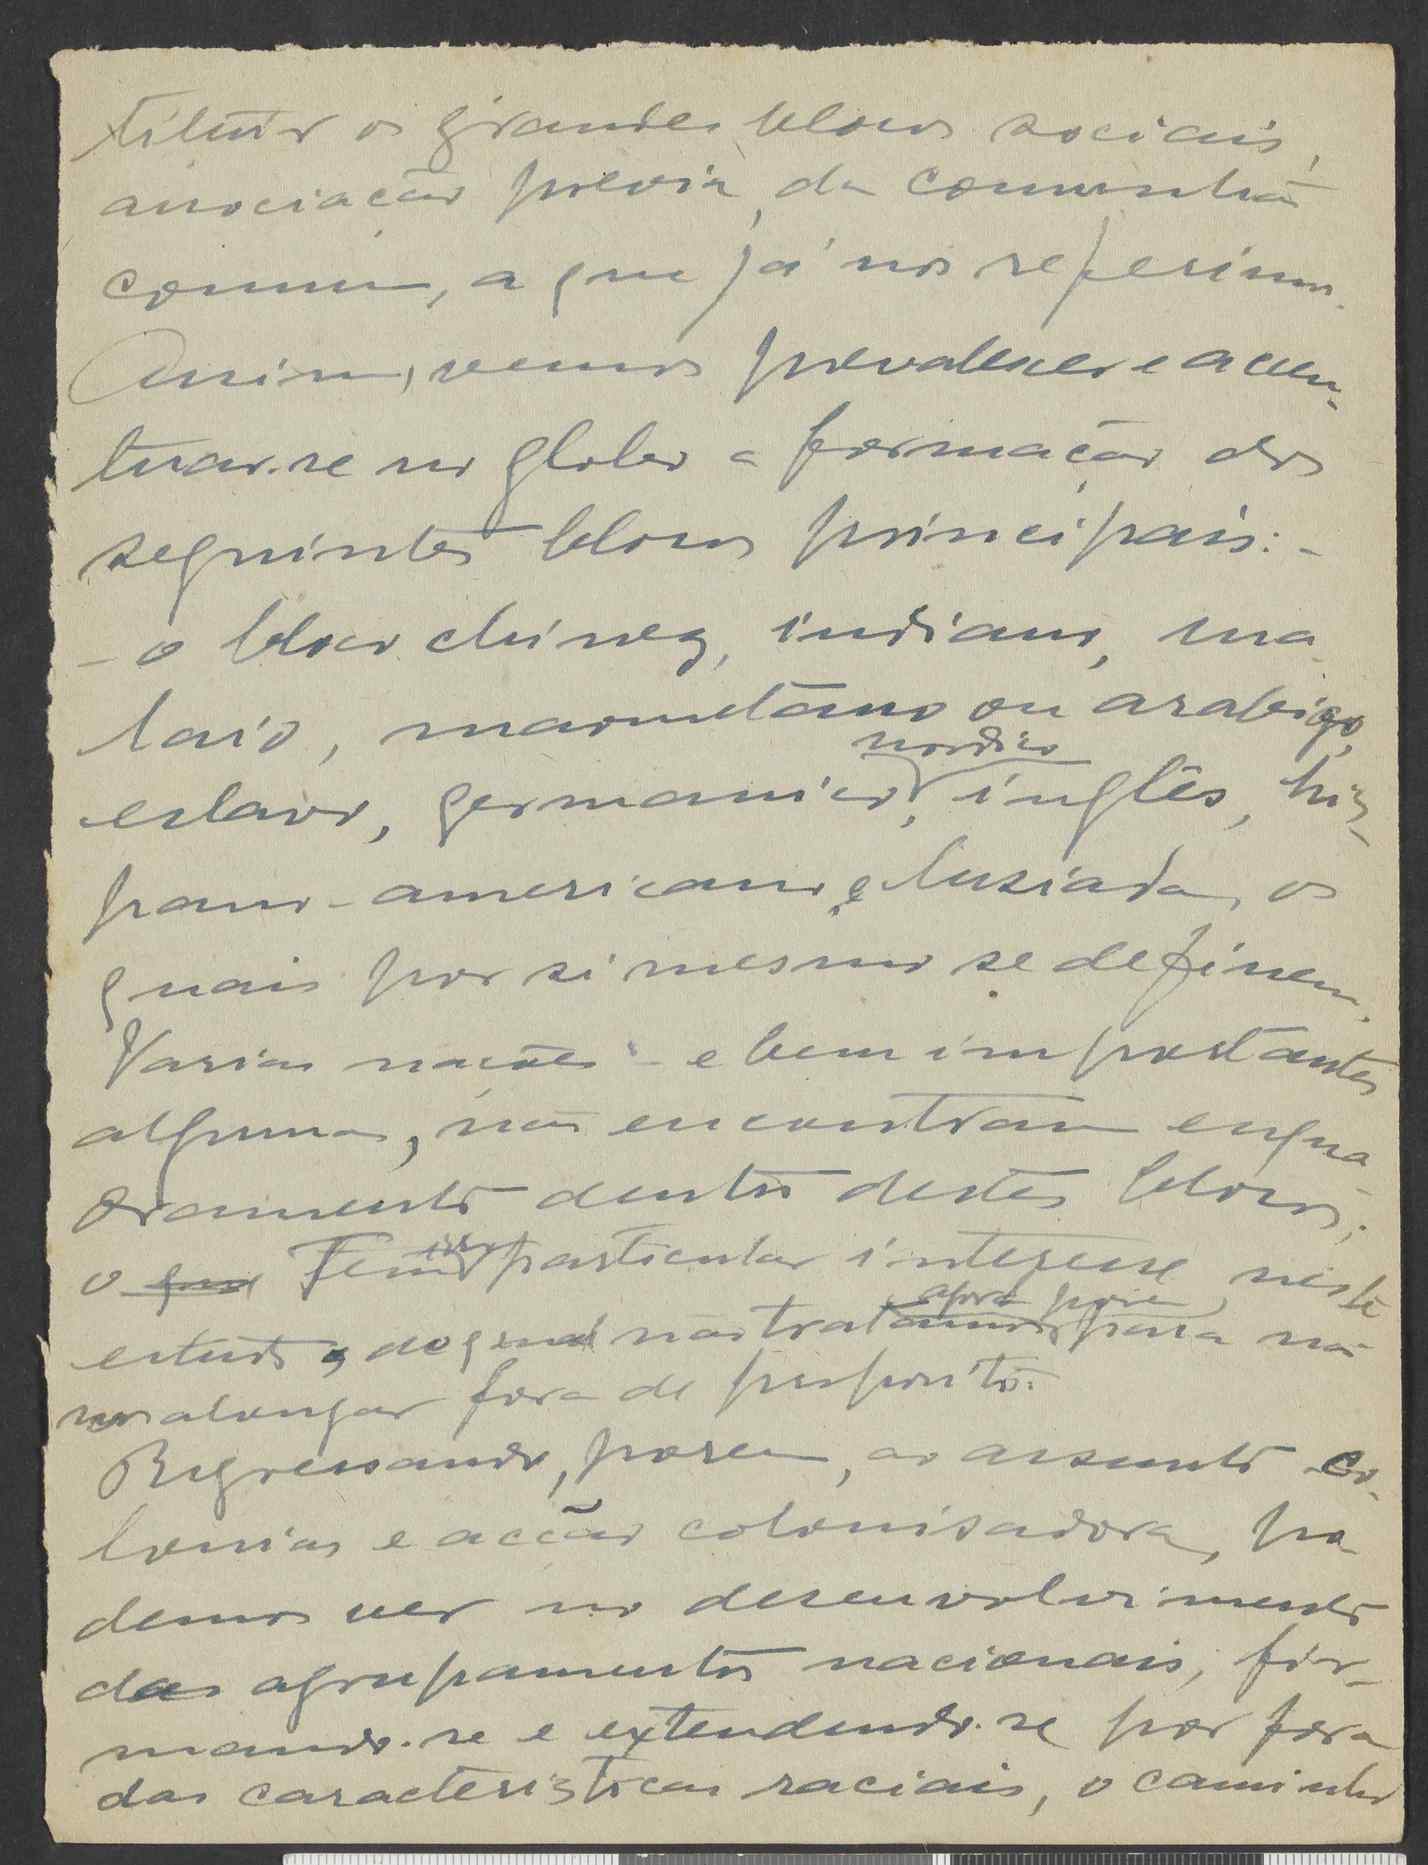 tituir os grandes blocos sociais,
associação previa, da comunhão
comum, a que já nos referimos.
Assim, vemos prevalecer e acen-
tuar-se no globo a formação dos
seguintes blocos principais:-
- o bloco chinez, indiano, ma
laio, maometâno ou arabigo,
nordico
eslavo, germanico, inglês, his-
pano-americano e lusiada, os
quais por si mesmo se definem.
Varias nações - e bem importantes
algumas, não encontram enqua-
dramento dentro destes blocos;
o que tem isso particular interesse neste
agora porem
estudo, do qual não tratamos para não
nos alongar fora de proposito.
Regressando, porem, ao assunto co-
lonias e acção colonisadora, po
demos ver no desenvolvimento
dos agrupamentos nacionais, for-
mando-se e extendendo-se por fora
das caracteristicas raciais, o caminho